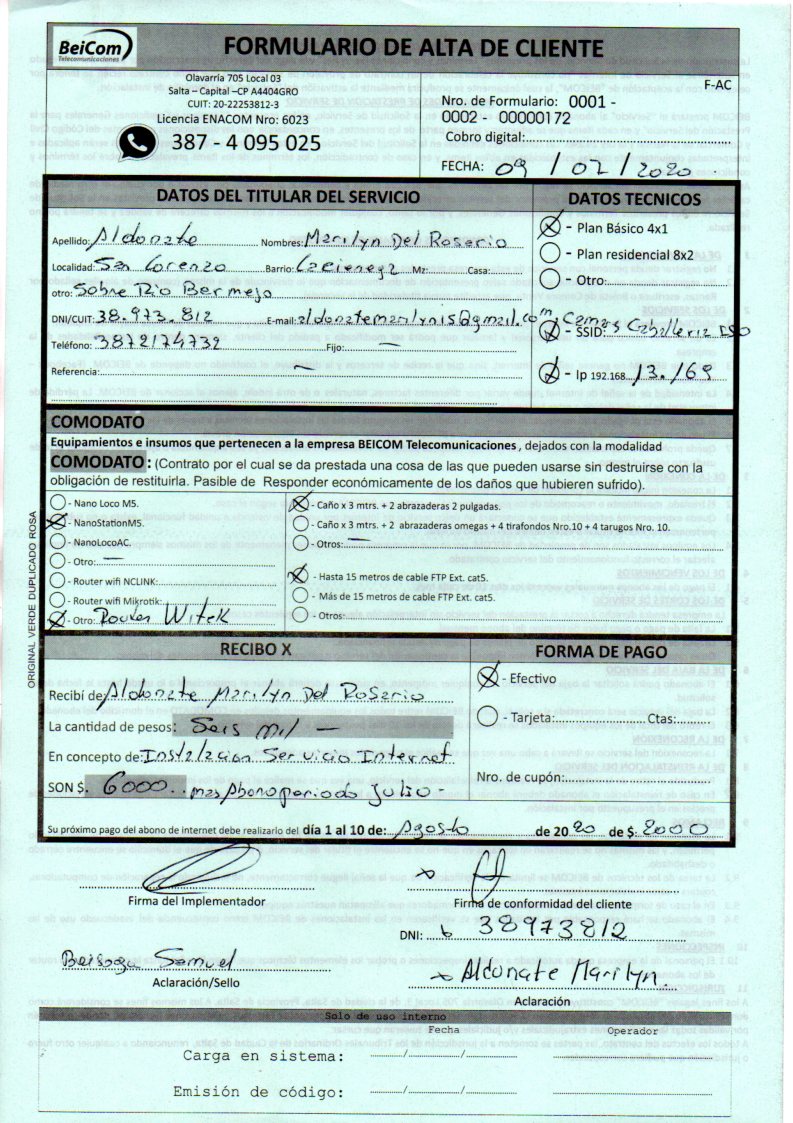 BeiCom
Telecomunicaciones
FORMULARIO DE ALTA DE CLIENTE
Olavarría 705 Local 03
Salta – Capital –CP A4404GRO
CUIT: 20-22253812-3
Licencia ENACOM Nro: 6023
387 - 4 095 025
F-AC
Nro. de Formulario: 0001 -
0002 - 00000172
Cobro digital:
FECHA: 09 / 07 / 2020
DATOS DEL TITULAR DEL SERVICIO
Apellido: Aldonate Nombres: Marilyn Del Rosario
Localidad: San Lorenzo Barrio: La cienega Mz: Casa:
otro: Sobre Rio Bermejo
DNI/CUIT: 38.973.812 E-mail: aldonatemarilyn15@gmail.com
Teléfono: 3872174732 Fijo: —
Referencia: —
DATOS TECNICOS
- Plan Básico 4x1
- Plan residencial 8x2
- Otro:
- SSID: Caballeriza
- Ip 192.168. 13./69
COMODATO
Equipamientos e insumos que pertenecen a la empresa BEICOM Telecomunicaciones, dejados con la modalidad
COMODATO: (Contrato por el cual se da prestada una cosa de las que pueden usarse sin destruirse con la
obligación de restituirla. Pasible de Responder económicamente de los daños que hubieren sufrido).
- Nano Loco M5.
- NanoStationM5.
- NanoLocoAC.
- Otro: —
- Router wifi NCLINK:
- Router wifi Mikrotik:
- Otro: Router Witek
- Caño x 3 mtrs. + 2 abrazaderas 2 pulgadas.
- Caño x 3 mtrs. + 2 abrazaderas omegas + 4 tirafondos Nro.10 + 4 tarugos Nro. 10.
- Otros: —
- Hasta 15 metros de cable FTP Ext. cat5.
- Más de 15 metros de cable FTP Ext. cat5.
- Otros:
ORIGINAL VERDE DUPLICADO ROSA
RECIBO X
Recibí de: Aldonate Marilyn Del Rosario
La cantidad de pesos: Seis mil —
En concepto de: Instalacion Servicio Internet
SON $. 6000 mas Abono periodo Julio -
FORMA DE PAGO
- Efectivo
- Tarjeta: Ctas:
Nro. de cupón:
Su próximo pago del abono de internet debe realizarlo del día 1 al 10 de: Agosto de 2020 de $. 2000
Firma del Implementador
Firma de conformidad del cliente
DNI: 38973812
Samuel
Aclaración/Sello
Aldonate Marilyn
Aclaración
Solo de uso interno
Fecha Operador
Carga en sistema: / /
Emisión de código: / /